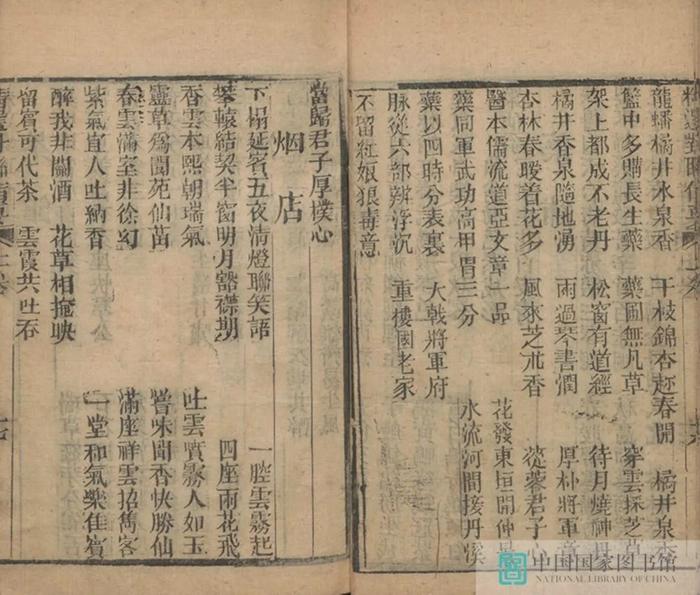 龍蟠橘井水泉香 千枝錦杏趂春開 橘井泉香
籃中多購長生藥 藥圃無凡草 穿雲採芝草
架上都成不老丹 松窗有道經 待月燒神丹
橘井香泉隨地湧 雨過琴書潤 厚朴將軍意
杏林春暖着花多 風來芝朮香 蓯蓉君子心
醫本儒流道亞文章一品 花發東垣開仲景
藥同軍武功高甲冑三分 水流河間接丹溪
藥以四時分表裏 大戟將軍府
脉從六部辨浮沉 重樓國老家
不留紅娘狠毒意
當歸君子厚樸心
烟店
下榻延賓五夜清燈聯笑語 一腔雲霧起
攀轅結契半窗明月豁襟期 四座雨花飛
香雲本熙朝瑞氣 吐雲噴霧人如玉
靈草爲閬苑仙苗 嘗味聞香快勝仙
春雲滿室非徐幻 滿座祥雲招雋客
紫氣直人吐納香 一堂和氣樂佳賓
醉我非關酒 花草相掩映
留賓可代茶 雲霞共吐吞
中国国家图书馆
NATIONAL LIBRARY OF CHINA